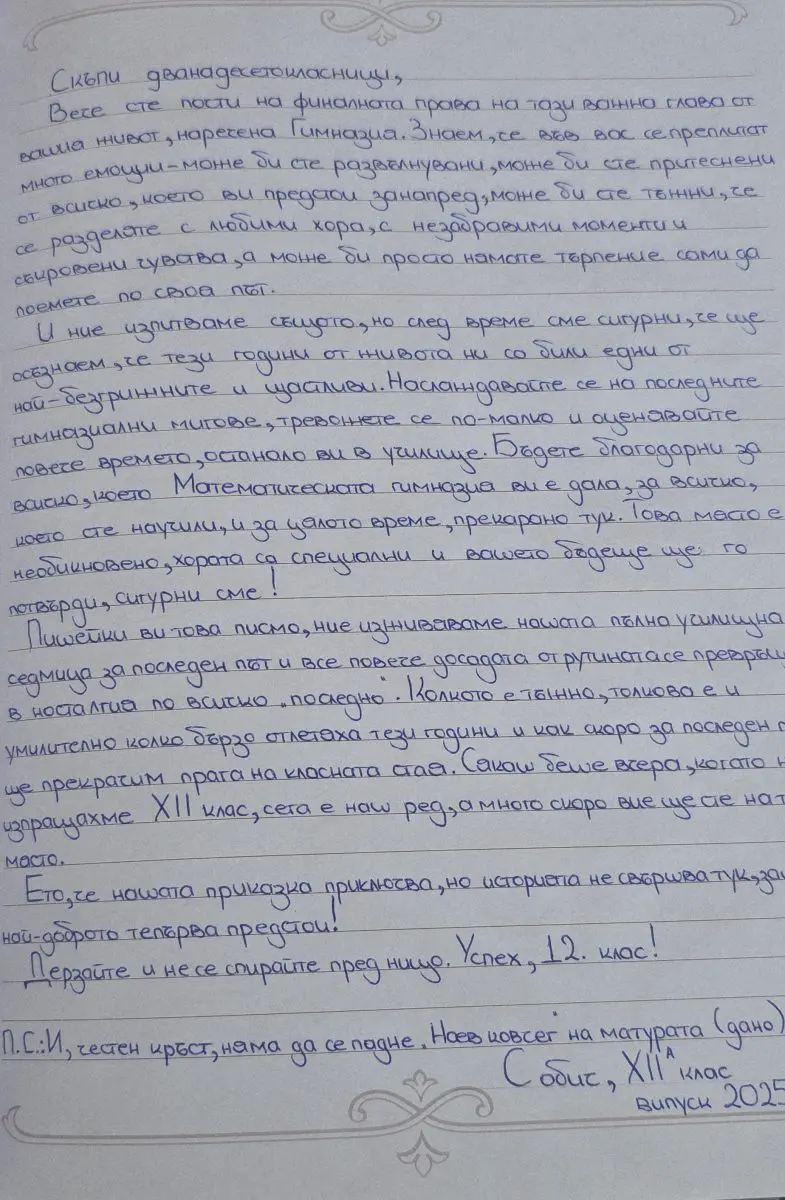 Скъпи дванадесетокласници,
Вече сте почти на финалната права на тази важна глава от
вашия живот, наречена Гимназия. Знаем, че във вас се преплитат
много емоции - може би сте развълнувани, може би сте притеснени
от всичко, което ви предстои занапред, може би сте тъжни, че
се разделяте с любими хора, с незабравими моменти и
съкровени чувства, а може би просто нямате търпение сами да
поемете по своя път.
И ние изпитваме същото, но след време сме сигурни, че ще
осъзнаем, че тези години от живота ни са били едни от
най-безгрижните и щастливи. Наслаждавайте се на последните
гимназиални мигове, тревожете се по-малко и оценявайте
повече времето, останало ви в училище. Бъдете благодарни за
всичко, което Математическата гимназия ви е дала, за всичко,
което сте научили, и за цялото време, прекарано тук. Това място е
необикновено, хората са специални и вашето бъдеще ще го
потвърди, сигурни сме!
Пишейки ви това писмо, ние изживяваме нашата пълна училищна
седмица за последен път и все повече досадата от рутината се превръщ
в носталгия по всичко „последно". Колкото е тъжно, толкова е и
умилително колко бързо отлетяха тези години и как скоро за последен п
ще прекрачим прага на класната стая. Сякаш беше вчера, когато н
изпращахме XII клас, сега е наш ред, а много скоро вие ще сте на т
място.
Ето, че нашата приказка приключва, но историята не свършва тук, за
най-доброто тепърва предстои!
Дерзайте и не се спирайте пред нищо. Успех, 12. клас!
П.С.: И, честен кръст, няма да се падне „Ноев ковчег" на матурата (дано)
С обич, XIIᴬ клас
випуск 2025